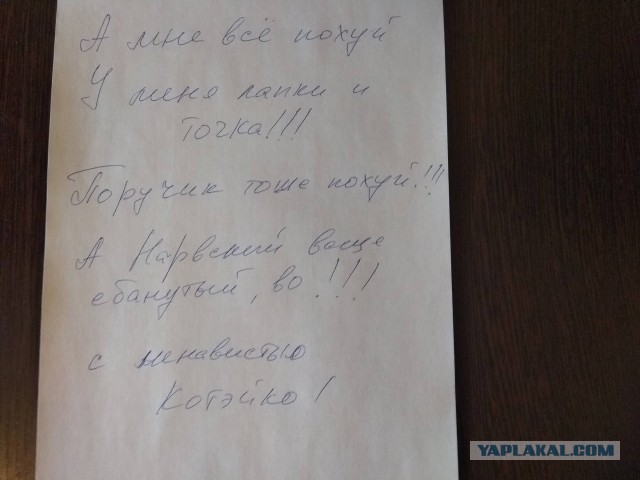 А мне всё похуй
У меня лапки и
точка!!!
Поручик тоше похуй!!!
А Нарвский ваще
ебанутый, во!!!
с ненавистью
Котэйко!
YAPLAKAL.COM